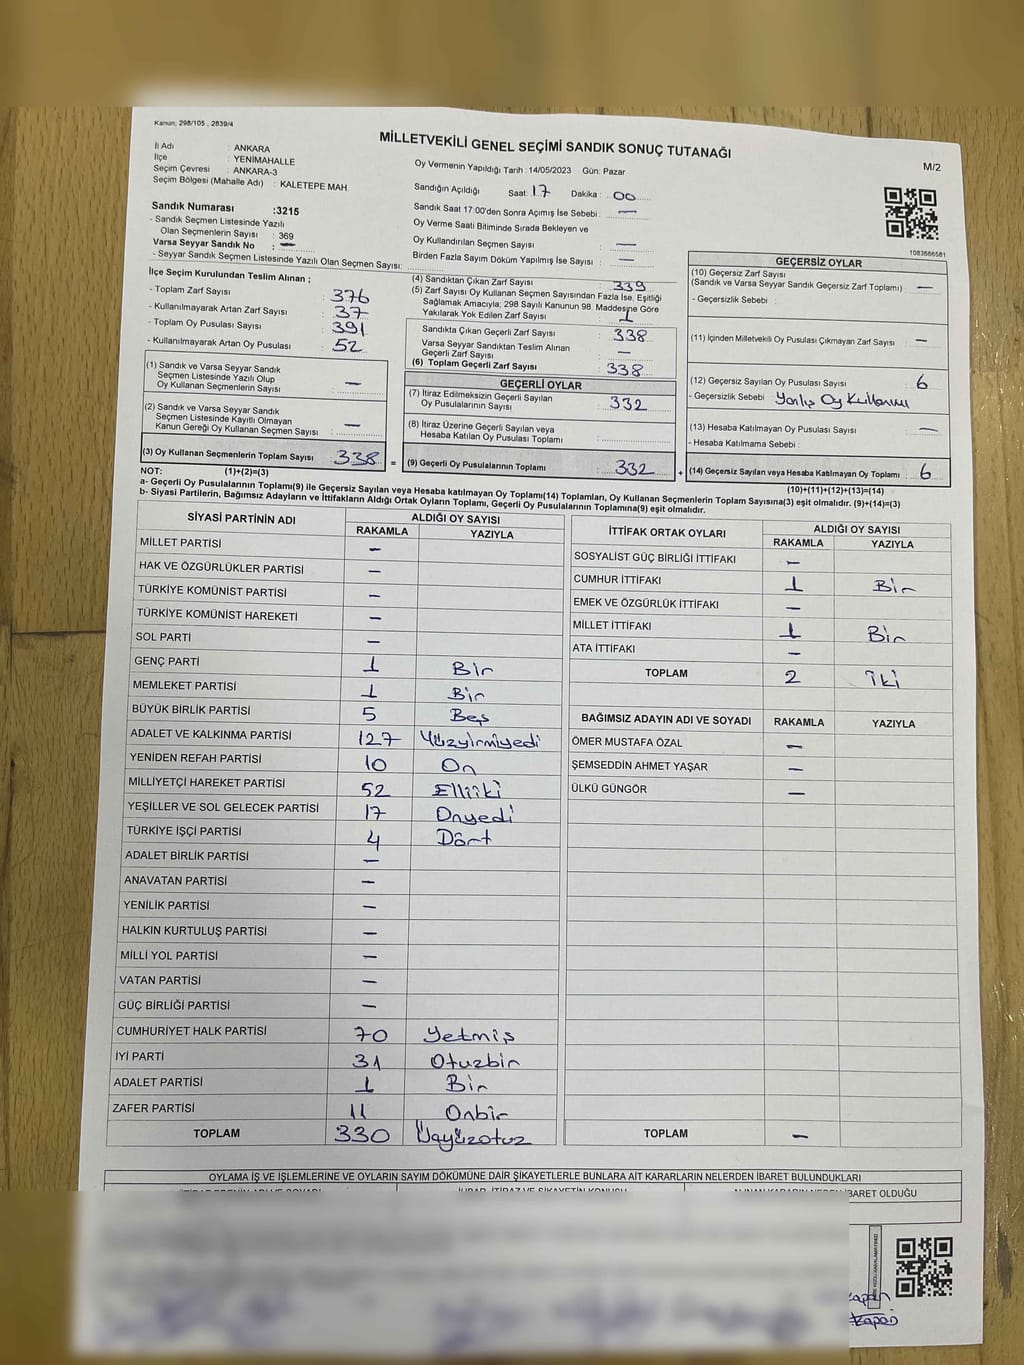 Kanun; 298/105 , 2839/4
MİLLETVEKİLİ GENEL SEÇİMİ SANDIK SONUÇ TUTANAĞI
M/2
İl Adı : ANKARA
İlçe : YENİMAHALLE
Seçim Çevresi : ANKARA-3
Seçim Bölgesi (Mahalle Adı) : KALETEPE MAH
Oy Vermenin Yapıldığı Tarih :14/05/2023 Gün: Pazar
Sandığın Açıldığı Saat: 17 Dakika : 00
Sandık Saat 17:00'den Sonra Açımış İse Sebebi : —
Oy Verme Saati Bitiminde Sırada Bekleyen ve
Oy Kullandırılan Seçmen Sayısı : —
Birden Fazla Sayım Döküm Yapılmış İse Sayısı : —
Sandık Numarası :3215
- Sandık Seçmen Listesinde Yazılı
Olan Seçmenlerin Sayısı : 369
Varsa Seyyar Sandık No : —
- Seyyar Sandık Seçmen Listesinde Yazılı Olan Seçmen Sayısı:
İlçe Seçim Kurulundan Teslim Alınan ;
- Toplam Zarf Sayısı : 376
- Kullanılmayarak Artan Zarf Sayısı : 37
- Toplam Oy Pusulası Sayısı : 391
- Kullanılmayarak Artan Oy Pusulası : 52
(1) Sandık ve Varsa Seyyar Sandık
Seçmen Listesinde Yazılı Olup
Oy Kullanan Seçmenlerin Sayısı : —
(2) Sandık ve Varsa Seyyar Sandık
Seçmen Listesinde Kayıtlı Olmayan
Kanun Gereği Oy Kullanan Seçmen Sayısı : —
(3) Oy Kullanan Seçmenlerin Toplam Sayısı : 338 =
(4) Sandıktan Çıkan Zarf Sayısı : 339
(5) Zarf Sayısı Oy Kullanan Seçmen Sayısından Fazla İse, Eşitliği
Sağlamak Amacıyla; 298 Sayılı Kanunun 98. Maddesine Göre
Yakılarak Yok Edilen Zarf Sayısı : 1
Sandıkta Çıkan Geçerli Zarf Sayısı : 338
Varsa Seyyar Sandıktan Teslim Alınan
Geçerli Zarf Sayısı : —
(6) Toplam Geçerli Zarf Sayısı : 338
GEÇERLİ OYLAR
(7) İtiraz Edilmeksizin Geçerli Sayılan
Oy Pusulalarının Sayısı : 332
(8) İtiraz Üzerine Geçerli Sayılan veya
Hesaba Katılan Oy Pusulası Toplamı :
(9) Geçerli Oy Pusulalarının Toplamı : 332 +
1083586581
GEÇERSİZ OYLAR
(10) Geçersiz Zarf Sayısı
(Sandık ve Varsa Seyyar Sandık Geçersiz Zarf Toplamı) : —
- Geçersizlik Sebebi :
(11) İçinden Milletvekili Oy Pusulası Çıkmayan Zarf Sayısı : —
(12) Geçersiz Sayılan Oy Pusulası Sayısı : 6
- Geçersizlik Sebebi : Yanlış Oy Kullanımı
(13) Hesaba Katılmayan Oy Pusulası Sayısı : —
- Hesaba Katılmama Sebebi :
(14) Geçersiz Sayılan veya Hesaba Katılmayan Oy Toplamı : 6
NOT: (1)+(2)=(3)
(10)+(11)+(12)+(13)=(14)
a- Geçerli Oy Pusulalarının Toplamı(9) ile Geçersiz Sayılan veya Hesaba katılmayan Oy Toplamı(14) Toplamları, Oy Kullanan Seçmenlerin Toplam Sayısına(3) eşit olmalıdır. (9)+(14)=(3)
b- Siyasi Partilerin, Bağımsız Adayların ve İttifakların Aldığı Ortak Oyların Toplamı, Geçerli Oy Pusulalarının Toplamına(9) eşit olmalıdır.
SİYASİ PARTİNİN ADI ALDIĞI OY SAYISI
RAKAMLA YAZIYLA
MİLLET PARTİSİ —
HAK VE ÖZGÜRLÜKLER PARTİSİ —
TÜRKİYE KOMÜNİST PARTİSİ —
TÜRKİYE KOMÜNİST HAREKETİ —
SOL PARTİ —
GENÇ PARTİ 1 Bir
MEMLEKET PARTİSİ 1 Bir
BÜYÜK BİRLİK PARTİSİ 5 Beş
ADALET VE KALKINMA PARTİSİ 127 Yüzyirmiyedi
YENİDEN REFAH PARTİSİ 10 On
MİLLİYETÇİ HAREKET PARTİSİ 52 Elliiki
YEŞİLLER VE SOL GELECEK PARTİSİ 17 Onyedi
TÜRKİYE İŞÇİ PARTİSİ 4 Dört
ADALET BİRLİK PARTİSİ —
ANAVATAN PARTİSİ —
YENİLİK PARTİSİ —
HALKIN KURTULUŞ PARTİSİ —
MİLLİ YOL PARTİSİ —
VATAN PARTİSİ —
GÜÇ BİRLİĞİ PARTİSİ —
CUMHURİYET HALK PARTİSİ 70 Yetmiş
İYİ PARTİ 31 Otuzbir
ADALET PARTİSİ 1 Bir
ZAFER PARTİSİ 11 Onbir
TOPLAM 330 Üçyüzotuz
İTTİFAK ORTAK OYLARI ALDIĞI OY SAYISI
RAKAMLA YAZIYLA
SOSYALİST GÜÇ BİRLİĞİ İTTİFAKI —
CUMHUR İTTİFAKI 1 Bir
EMEK VE ÖZGÜRLÜK İTTİFAKI —
MİLLET İTTİFAKI 1 Bir
ATA İTTİFAKI —
TOPLAM 2 İki
BAĞIMSIZ ADAYIN ADI VE SOYADI RAKAMLA YAZIYLA
ÖMER MUSTAFA ÖZAL —
ŞEMSEDDİN AHMET YAŞAR —
ÜLKÜ GÜNGÖR —
TOPLAM —
OYLAMA İŞ VE İŞLEMLERİNE VE OYLARIN SAYIM DÖKÜMÜNE DAİR ŞİKAYETLERLE BUNLARA AİT KARARLARIN NELERDEN İBARET BULUNDUKLARI
İBARET OLDUĞU